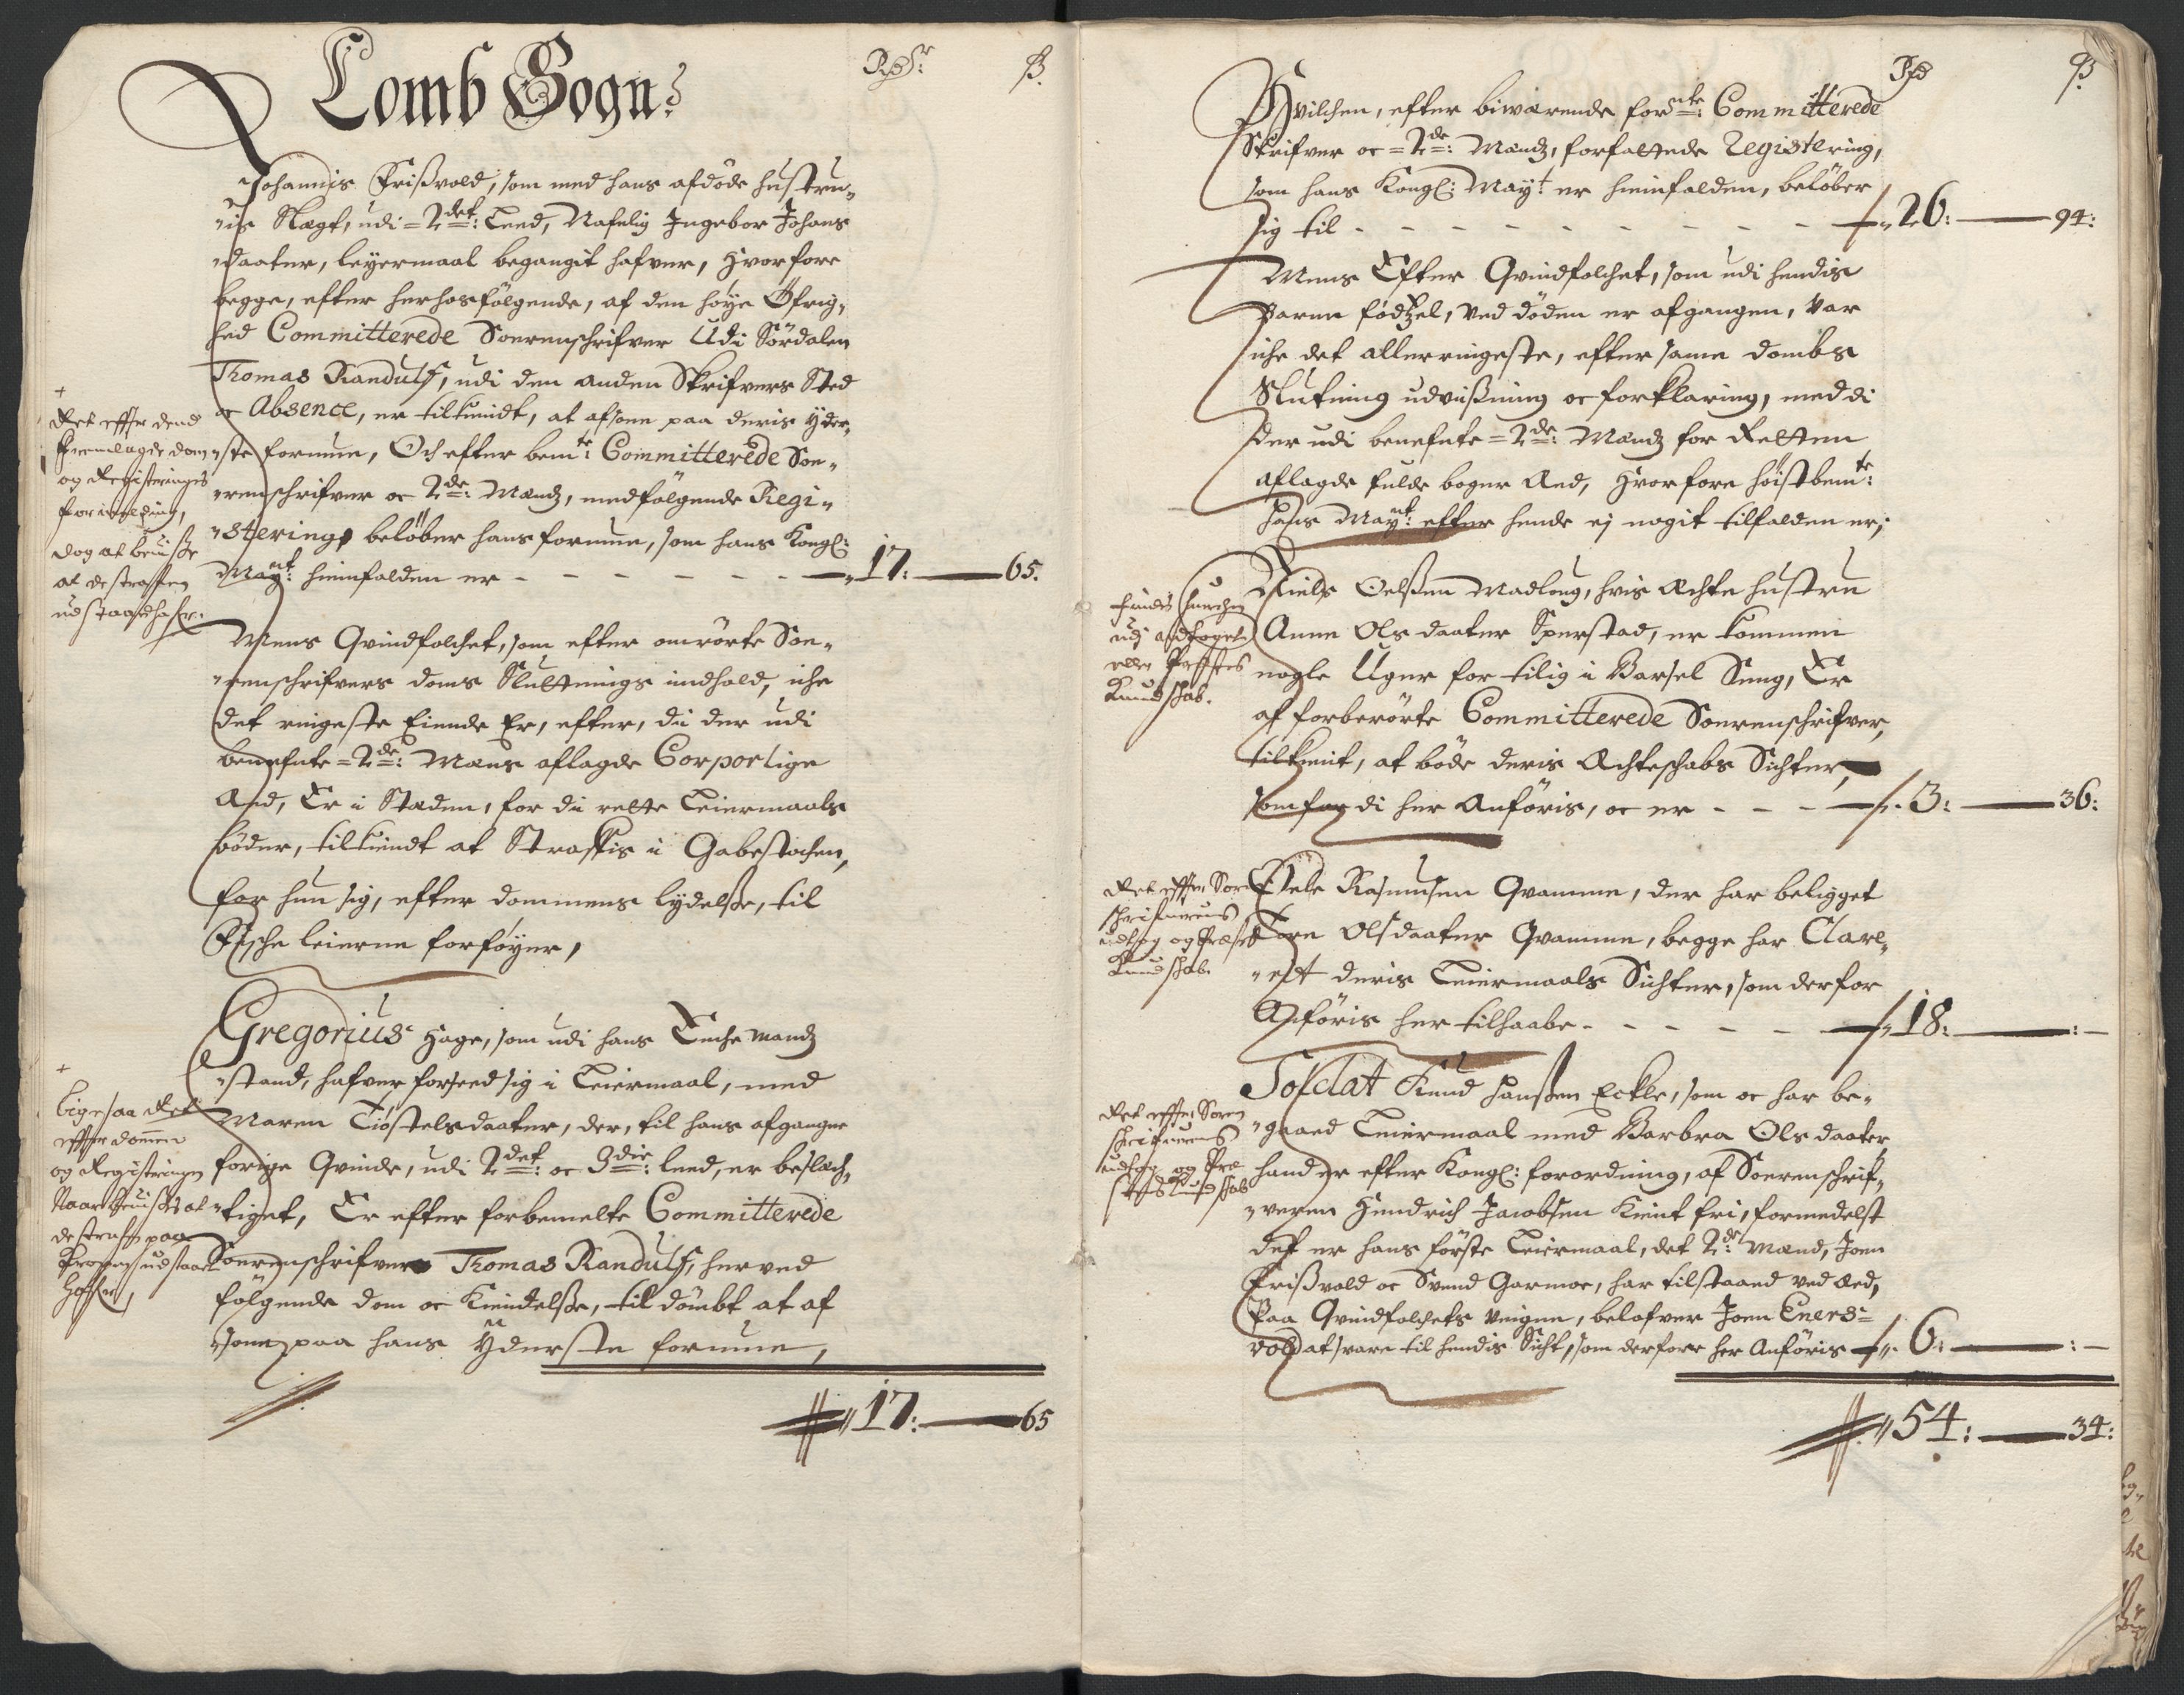 Lomb Sogn:
Rdr: ß.
Johannis Frißvold, som med hans afdöde hustru„
„is Slegt, udi = 2det: Leed, Nafnlig Ingebor Johans
daater, leyermaal begangit hafver, hvorfore
begge, efter herhosfölgende, af den höye Öfrig„
hed Committerede Sorenschrifver Udi Sördalen
Thomas Randulf, udi den anden Skrifvers Sted
oc Absence, er tilkiendt, at afsone paa deris Yder„
„ste formue, Och efter bemte: Committerede Sor„
„renschrifver oc 2de: Mænds, medfölgende Regi„
„stering, beløber hans formue, som hans Kongl:
Mayt: hiemfalden er - - - - - - „17: — 65.
+
Ret effter dend
fremlagde dom
og Registerings
forretning,
dog at beviise
at de straffen
udstaaed hafr.
Mens Qvindfolchet, som efter omrörte Sor„
„renschrifvers doms Sluttnings indhold, iche
det ringeste Eiende Er, efter, di der udi
benefnte = 2de: Mæns aflagde Corporlige
Æed, Er i Stæden, for di rette Leiermaals
böder, tilkiendt at Straffis i Gabestochen,
før hun sig, efter dommens lydelße, til
Fische leierne forföyer,
Gregorius Hage, som udi hans Enche Mands
„stand, hafver forseed sig i Leiermaal, med
Maren Tiöstelsdaater, der, til hans afgangne
forige Qvinde, udi 2det: oc 3die: leed, er beslech„
„tiget, Er efter forbemelte Committerede
Sorenschrifver Thomas Randulf, herved
fölgende dom oc Kiendelße, til dömbt at af
„sone paa hans Yderste formue,
+
Ligesaa Ret
effter dommen
og Registeringen
Naar beviises at
de straff paa
kroppen udstaaet
hafver,
17: — 65
Rd ß.
Hvilchen, efter biværende forbte: Committerede
Skrifver oc = 2de: Mænds, forfattede Registering,
som hans Kongl: Mayt er hiemfalden, belöber
sig til - - - - - - - - - „26: — 94:
Mens Efter Qvindfolchet, som udi hendis
Barne födtzel, ved döden er afgangen, var
iche det allerringeste, efter same dombs
Slutning udviißning oc forklaring, med di
der udi benefnte = 2de: Mænds for Retten
aflagde fulde boger Æed, hvorfore höistbemte:
Hans Mayt: efter hende ej nogit tilfalden er;
Niels Oelßen Madlong, hvis Ächte hustru
Anne Olsdaater Sperstad, er kommen
nogle Uger for tilig i Barsel Seng, Er
af forberörte Committerede Sorenschrifver,
tilkient, at böde deris Ächteschabs Sichter,
som for di her Anföris, oc er - - - „3: — 36:
findis huerchen
udj
eller Præstes
Kundschab.
Peder Rasmusen Qvamme, der har beligget
Tore Olsdaater Qvamme, begge har Clare„
„ret deris Leiermaals Sichter, som derfor
Anföris her tilhaabe - - - - - „18: — : —
Ret effter Soren
schrifuerens
udtog og Præstes
Kundschab.
Soldat Knud Hanßen Eckle, som oc har be„
„gaaed Leiermaal med Barbra Olsdaater,
hand er efter Kongl: forordning, af Sorenschrif„
„veren Hendrich Jacobsen Kient fri, formedelst
det er hans förste Leiermaal, det 2de: Mænd, Joen
Frißvold oc Svend Garmoe, har tilstaaed ved Æed,
Paa Qvindfolchets veigne, belofver Joen Eners=
vold at svare til hendis Sicht, som derfore her Anföris „6: — : —
Ret effter Soren
schrifuerens
udtog og Præ
stens Kundschab
„54: — 34: